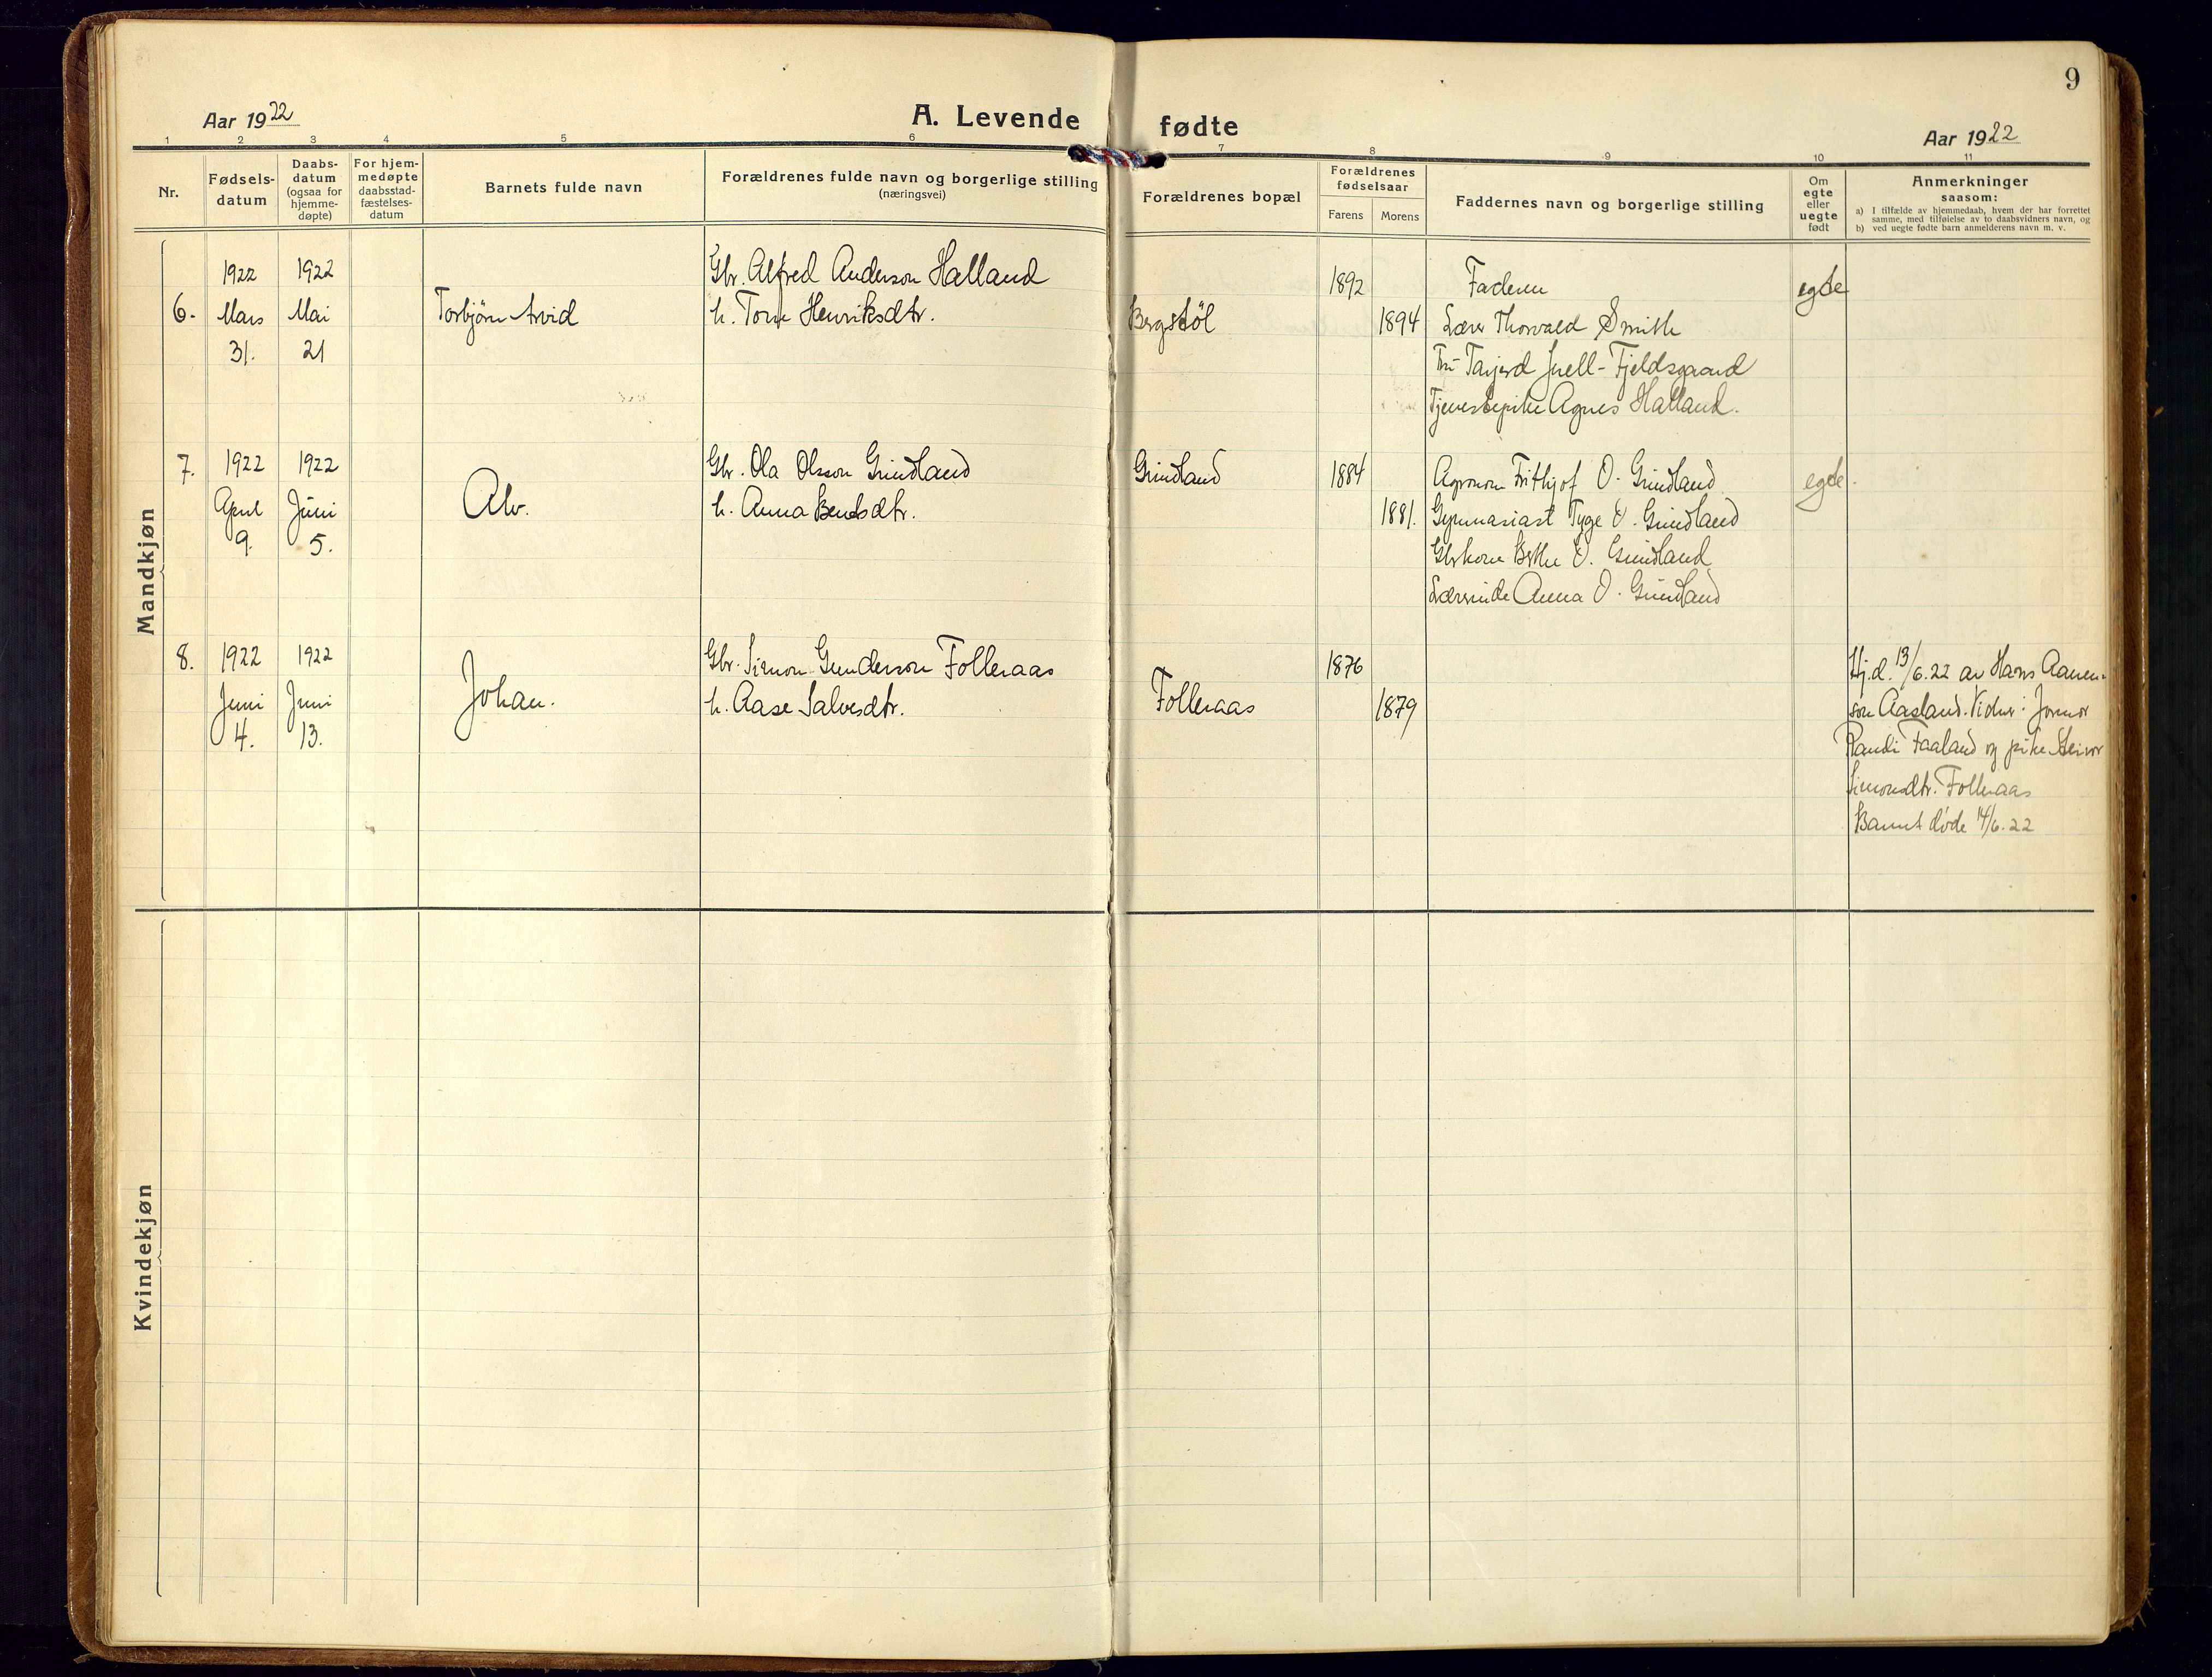 9
Aar 1922
A. Levende fødte
Aar 1922
1 2 3 4 5 6 7 8 9 10 11
Nr.
Fødsels-
datum
Daabs-
datum
(ogsaa for
hjemme-
døpte)
For hjem-
medøpte
daabsstad-
fæstelses-
datum
Barnets fulde navn
Forældrenes fulde navn og borgerlige stilling
(næringsvei)
Forældrenes bopæl
Forældrenes
fødselsaar
Farens
Morens
Faddernes navn og borgerlige stilling
Om
egte
eller
uegte
født
Anmerkninger
saasom:
a) I tilfælde av hjemmedaab, hvem der har forrettet
samme, med tilføielse av to daabsvidners navn, og
b) ved uegte fødte barn anmelderens navn m. v.
Mandkjøn
6.
1922
Mars
31.
1922
Mai
21
Torbjørn Arvid
Gbr. Alfred Anderson Halland
h. Tone Henriksdtr.
Bergstöl
1892
1894
Faderen
Lærer Thorvald Smith
Fru Tarjerd Juell-Fjeldsgaard
Tjenestepike Agnes Halland.
egte
7.
1922
April
9.
1922
Juni
5.
Alv.
Gbr. Ola Olsson Grindland
h. Anna Bendsdtr.
Grindland
1884
1881.
Agronom Frithjof O. Grindland
Gymnasiast Tyge O. Grindland
Gbrkone Berthe O. Grindland
Lærerinde Anna O. Grindland
egte.
8.
1922
Juni
4.
1922
Juni
13.
Johan.
Gbr. Simon Gunderson Folleraas
h. Aase Salvesdtr.
Folleraas
1876
1879
Hj.d. 13/6.22 av Hans Aanen-
son Aasland. Vidner: Jormor
Randi Faaland og pike
Simonsdtr. Folleraas
Barnet døde 14/6.22
Kvindekjøn